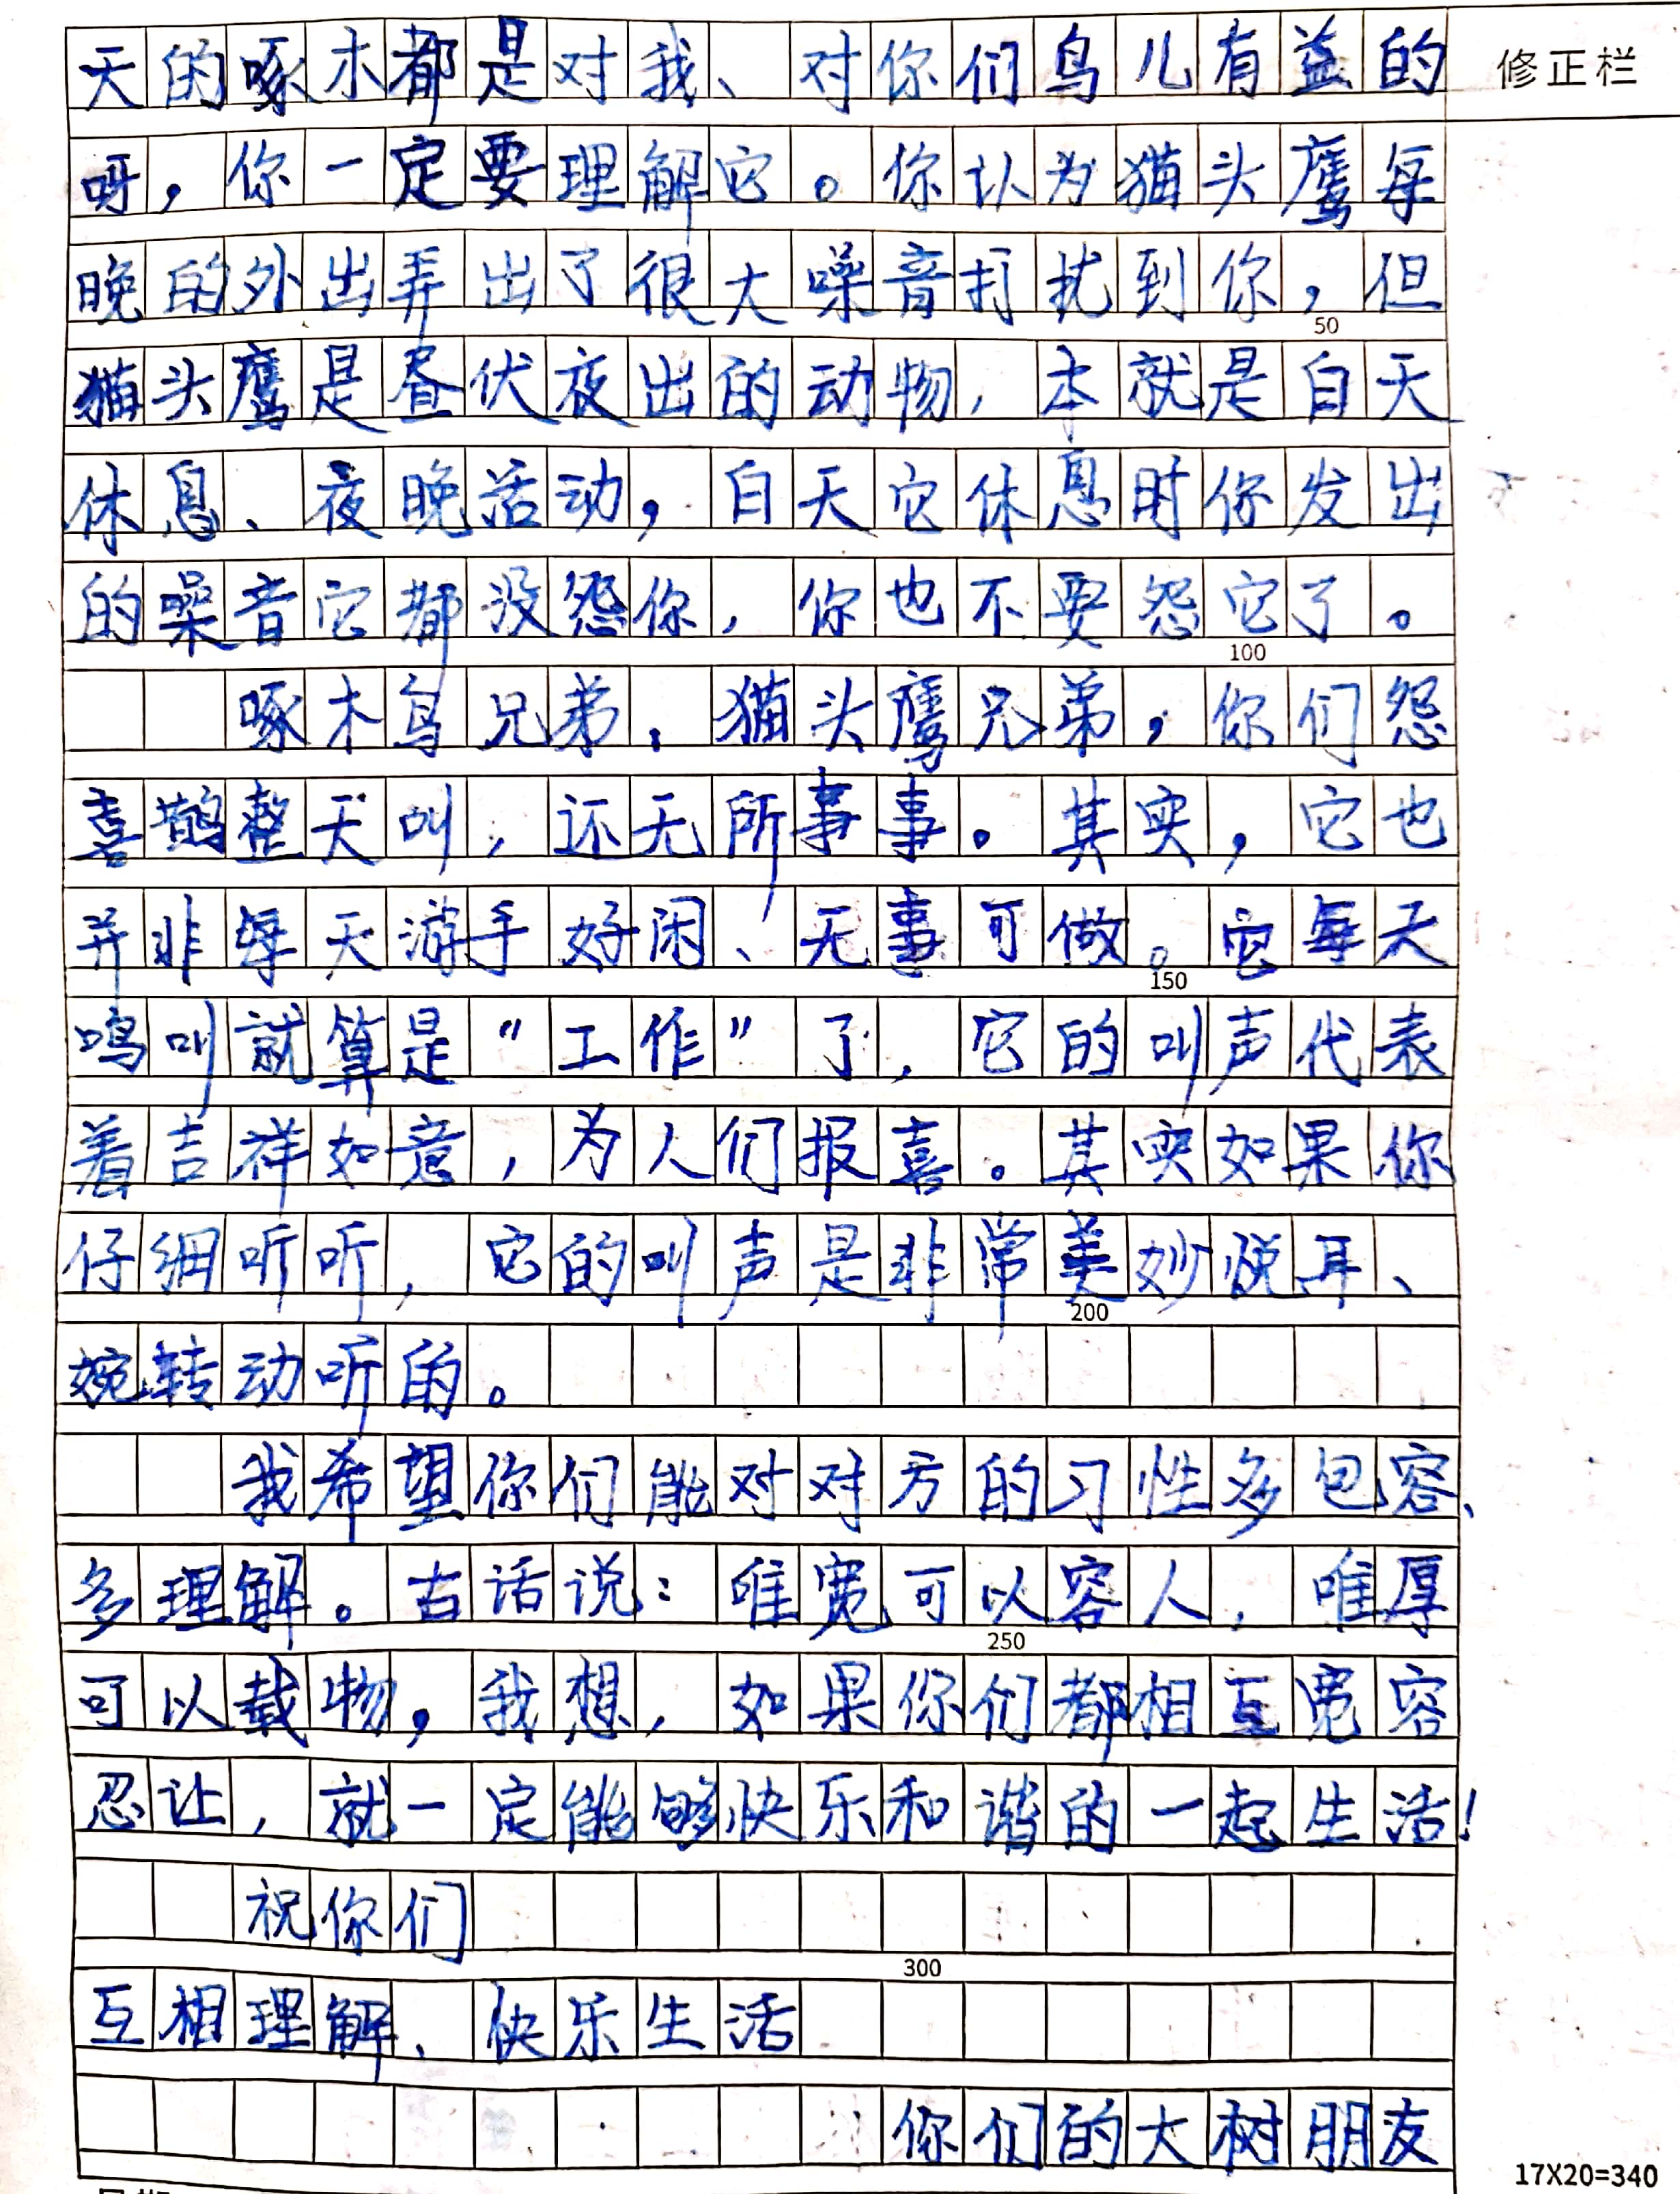 天的啄木都是对我、对你们鸟儿有益的
修正栏
呀，你一定要理解它。你认为猫头鹰每
晚的外出弄出了很大噪音打扰到你，但
50
猫头鹰是昼伏夜出的动物，本就是白天
休息、夜晚活动，白天它休息时你发出
的噪音它都没怨你，你也不要怨它了。
100
啄木鸟兄弟，猫头鹰兄弟，你们怨
喜鹊整天叫，还无所事事。其实，它也
并非每天游手好闲、无事可做。它每天
150
鸣叫就算是“工作”了，它的叫声代表
着吉祥如意，为人们报喜。其实如果你
仔细听听，它的叫声是非常美妙悦耳、
200
婉转动听的。
我希望你们能对对方的习性多包容、
多理解。古话说：唯宽可以容人，唯厚
250
可以载物，我想，如果你们都相互宽容
忍让，就一定能够快乐和谐的一起生活！
祝你们
300
互相理解、快乐生活
你们的大树朋友
17X20=340